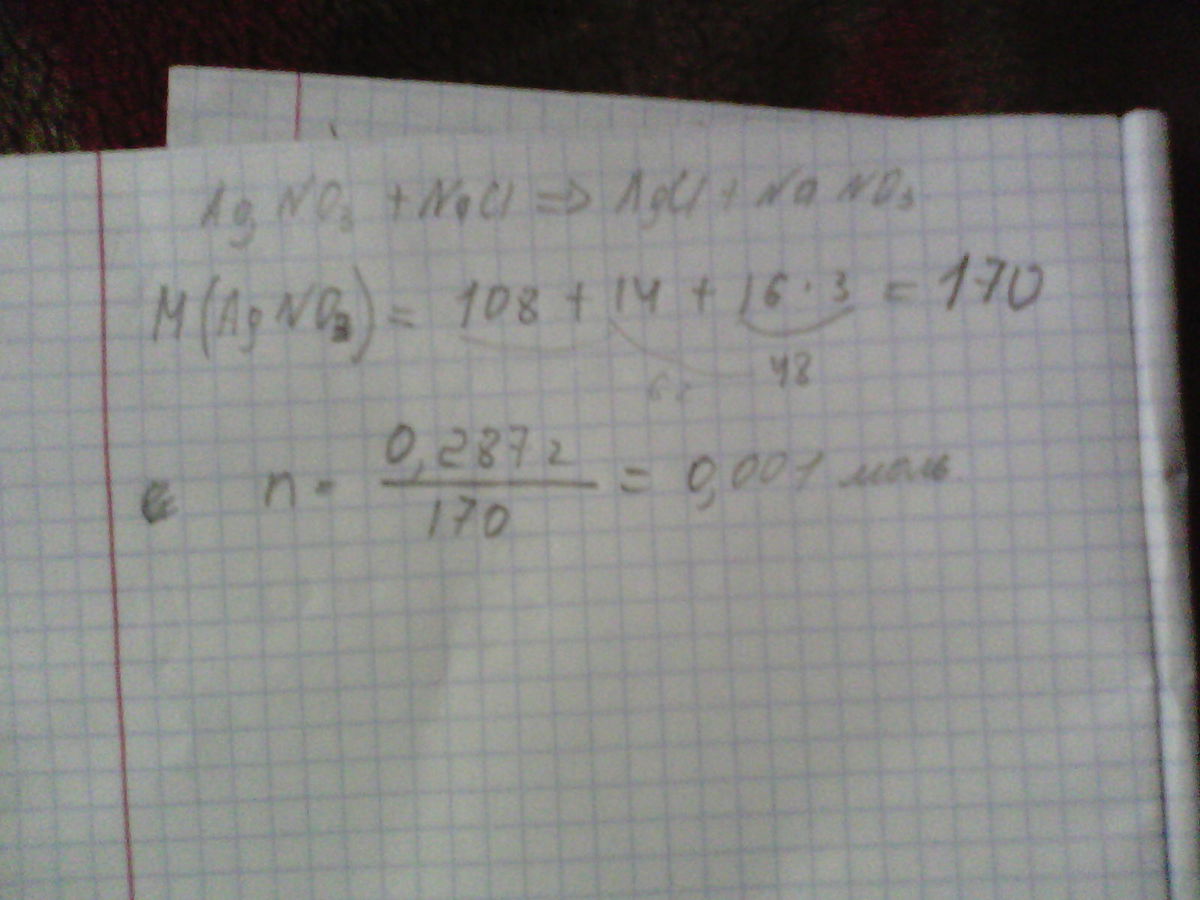 AgNO₃ + NaCl => AgCl + NaNO₃
M(AgNO₃) = 108 + 14 + 16·3 = 170
48
n = 0,287г / 170 = 0,001 моль.